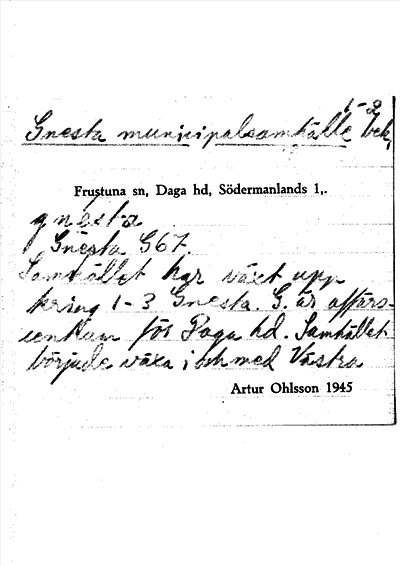 1-2
Gnesta municipalsamhälle bek,
Frustuna sn, Daga hd, Södermanlands l,.
gnèsta
Gnesta G67.
Samhället har växt upp
kring 1-3 Gnesta. G. är affärs-
centrum för Daga hd. Samhället
började växa i och med Västra
Artur Ohlsson 1945